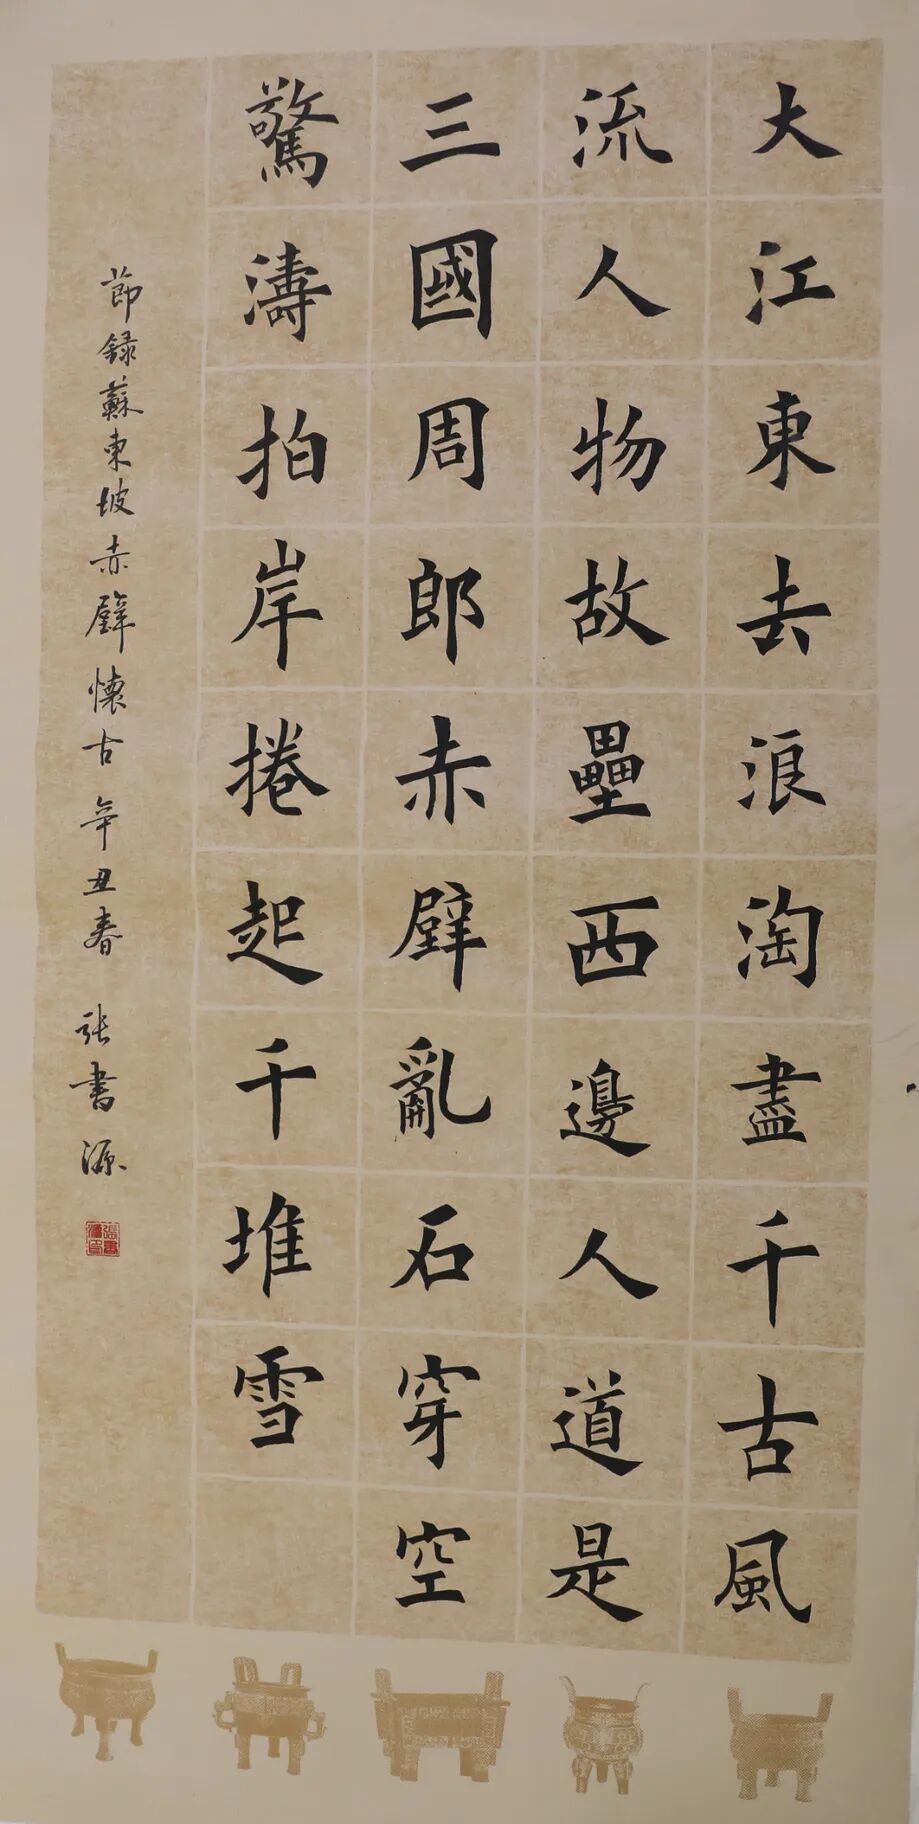 大江東去浪淘盡千古風
流人物故壘西邊人道是
三國周郎赤壁亂石穿空
驚濤拍岸捲起千堆雪
節録蘇東坡赤壁懷古辛丑春 張書源